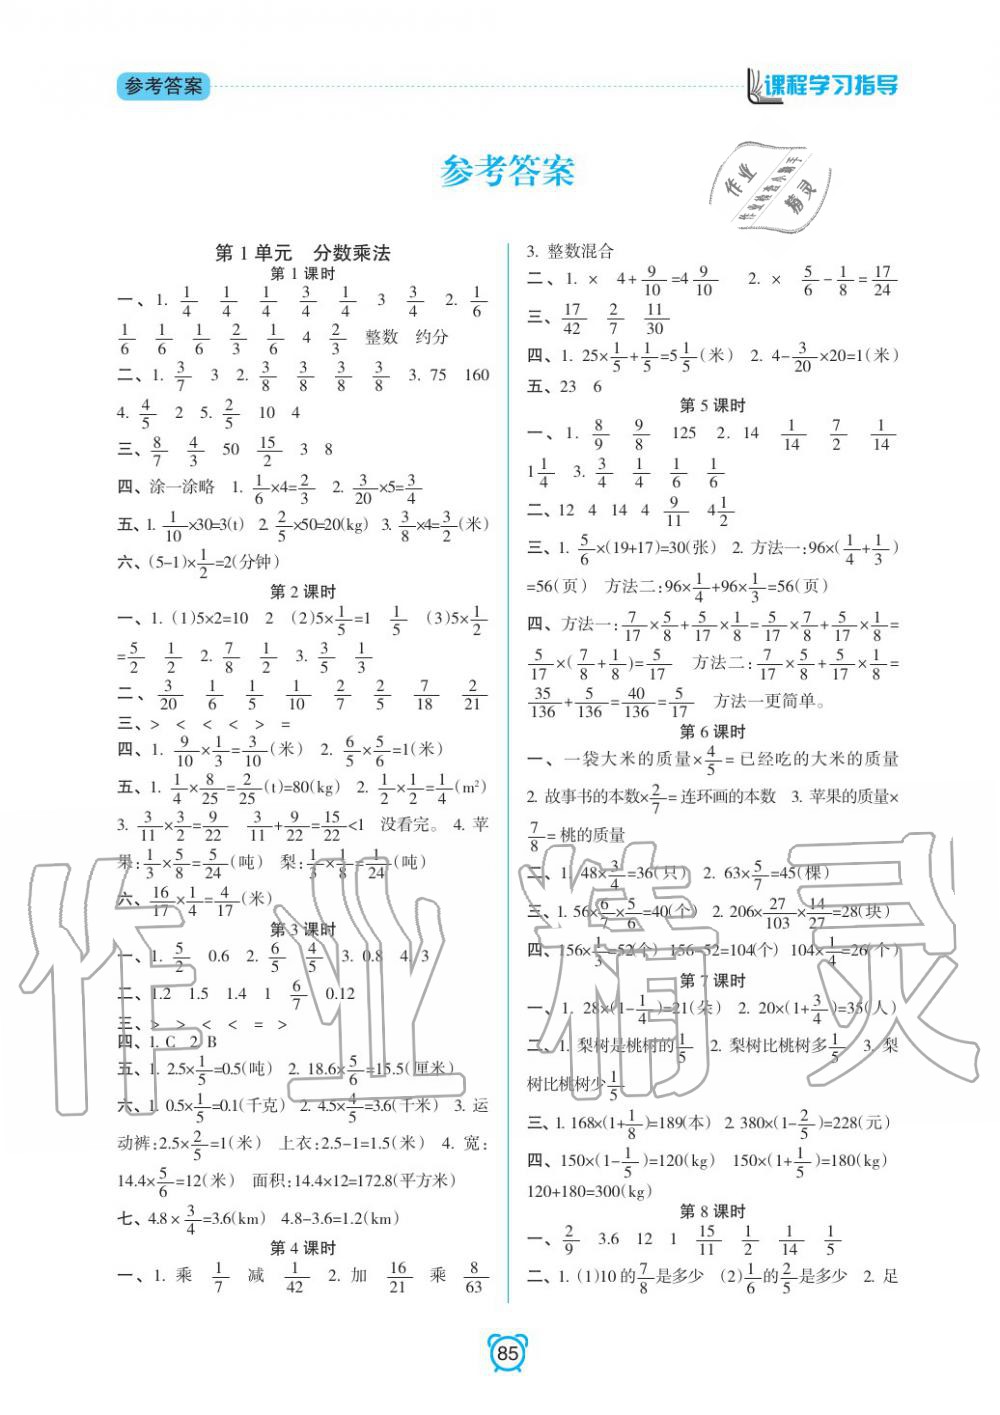 参考答案
课程学习指导
参考答案
作业
作业检查小助手
精灵
第 1 单元　分数乘法
第 1 课时
一、1. 1/4 1/4 1/4 3/4 1/4 3 3/4 2. 1/6
1/6 1/6 1/6 2/3 1/6 4 2/3 整数 约分
二、1. 3/7 3 2. 3/8 3/8 3/8 3/8 3. 75 160
4. 4/5 2 5. 2/5 10 4
三、8/7 4/3 50 15/2 3 8
四、涂一涂略 1. 1/6×4=2/3 2. 3/20×5=3/4
五、1. 1/10×30=3(t) 2. 2/5×50=20(kg) 3. 3/8×4=3/2(米)
六、(5-1)×1/2=2(分钟)
第 2 课时
一、1. (1)5×2=10 2 (2)5×1/5=1 1/5 (3)5×1/2
=5/2 1/2 2. 7/8 1/2 3. 3/5 1/3
二、3/20 1/6 1/5 1/10 2/7 2/5 7/18 2/21
三、> < < < > =
四、1. 9/10×1/3=3/10(米) 2. 6/5×5/6=1(米)
五、1. 1/4×8/25=2/25(t)=80(kg) 2. 1/2×1/2=1/4(m²)
3. 3/11×3/2=9/22 3/11+9/22=15/22<1 没看完。 4. 苹
果:1/3×5/8=5/24(吨) 梨:1/3×1/8=1/24(吨)
六、16/17×1/4=4/17(米)
第 3 课时
一、1. 5/2 0.6 2. 6/5 4/5 3. 0.8 4. 3
二、1.2 1.5 1.4 1 6/7 0.12
三、> > < < = >
四、1. C 2. B
五、1. 2.5×1/5=0.5(吨) 2. 18.6×5/6=15.5(厘米)
六、1. 0.5×1/5=0.1(千克) 2. 4.5×4/5=3.6(千米) 3. 运
动裤:2.5×2/5=1(米) 上衣:2.5-1=1.5(米) 4. 宽:
14.4×5/6=12(米) 面积:14.4×12=172.8(平方米)
七、4.8×3/4=3.6(km) 4.8-3.6=1.2(km)
第 4 课时
一、1. 乘 1/7 减 1/42 2. 加 16/21 乘 8/63
3. 整数混合
二、1. × 4+9/10=4 9/10 2. × 5/6-1/8=17/24
三、17/42 2/7 11/30
四、1. 25×1/5+1/5=5 1/5(米) 2. 4-3/20×20=1(米)
五、23 6
第 5 课时
一、1. 8/9 9/8 125 2. 14 1/14 7/2 1/14
1 1/4 3. 3/4 1/4 1/6 1/6
二、12 4 14 4 9/11 4 1/2
三、1. 5/6×(19+17)=30(张) 2. 方法一:96×(1/4+1/3)
=56(页) 方法二:96×1/4+96×1/3=56(页)
四、方法一:7/17×5/8+5/17×1/8=5/17×7/8+5/17×1/8=
5/17×(7/8+1/8)=5/17 方法二:7/17×5/8+5/17×1/8=
35/136+5/136=40/136=5/17 方法一更简单。
第 6 课时
一、一袋大米的质量×4/5=已经吃的大米的质量
2. 故事书的本数×2/7=连环画的本数 3. 苹果的质量×
7/8=桃的质量
二、1. 48×3/4=36(只) 2. 63×5/7=45(棵)
三、1. 56×6/7×5/6=40(个) 2. 206×27/103×14/27=28(块)
四、156×1/3=52(个) 156-52=104(个) 104×1/4=26(个)
第 7 课时
一、1. 28×(1-1/4)=21(朵) 2. 20×(1+3/4)=35(人)
二、1. 梨树是桃树的1/5 2. 梨树比桃树多1/5 3. 梨
树比桃树少1/5
三、1. 168×(1+1/8)=189(本) 2. 380×(1-2/5)=228(元)
四、150×(1-1/5)=120(kg) 150×(1+1/5)=180(kg)
120+180=300(kg)
第 8 课时
一、2/9 3.6 12 1 15/11 1/2 1/14 1/5
二、1. (1)10的7/8是多少 (2)1/6的2/5是多少 2. 足
作业精灵
85